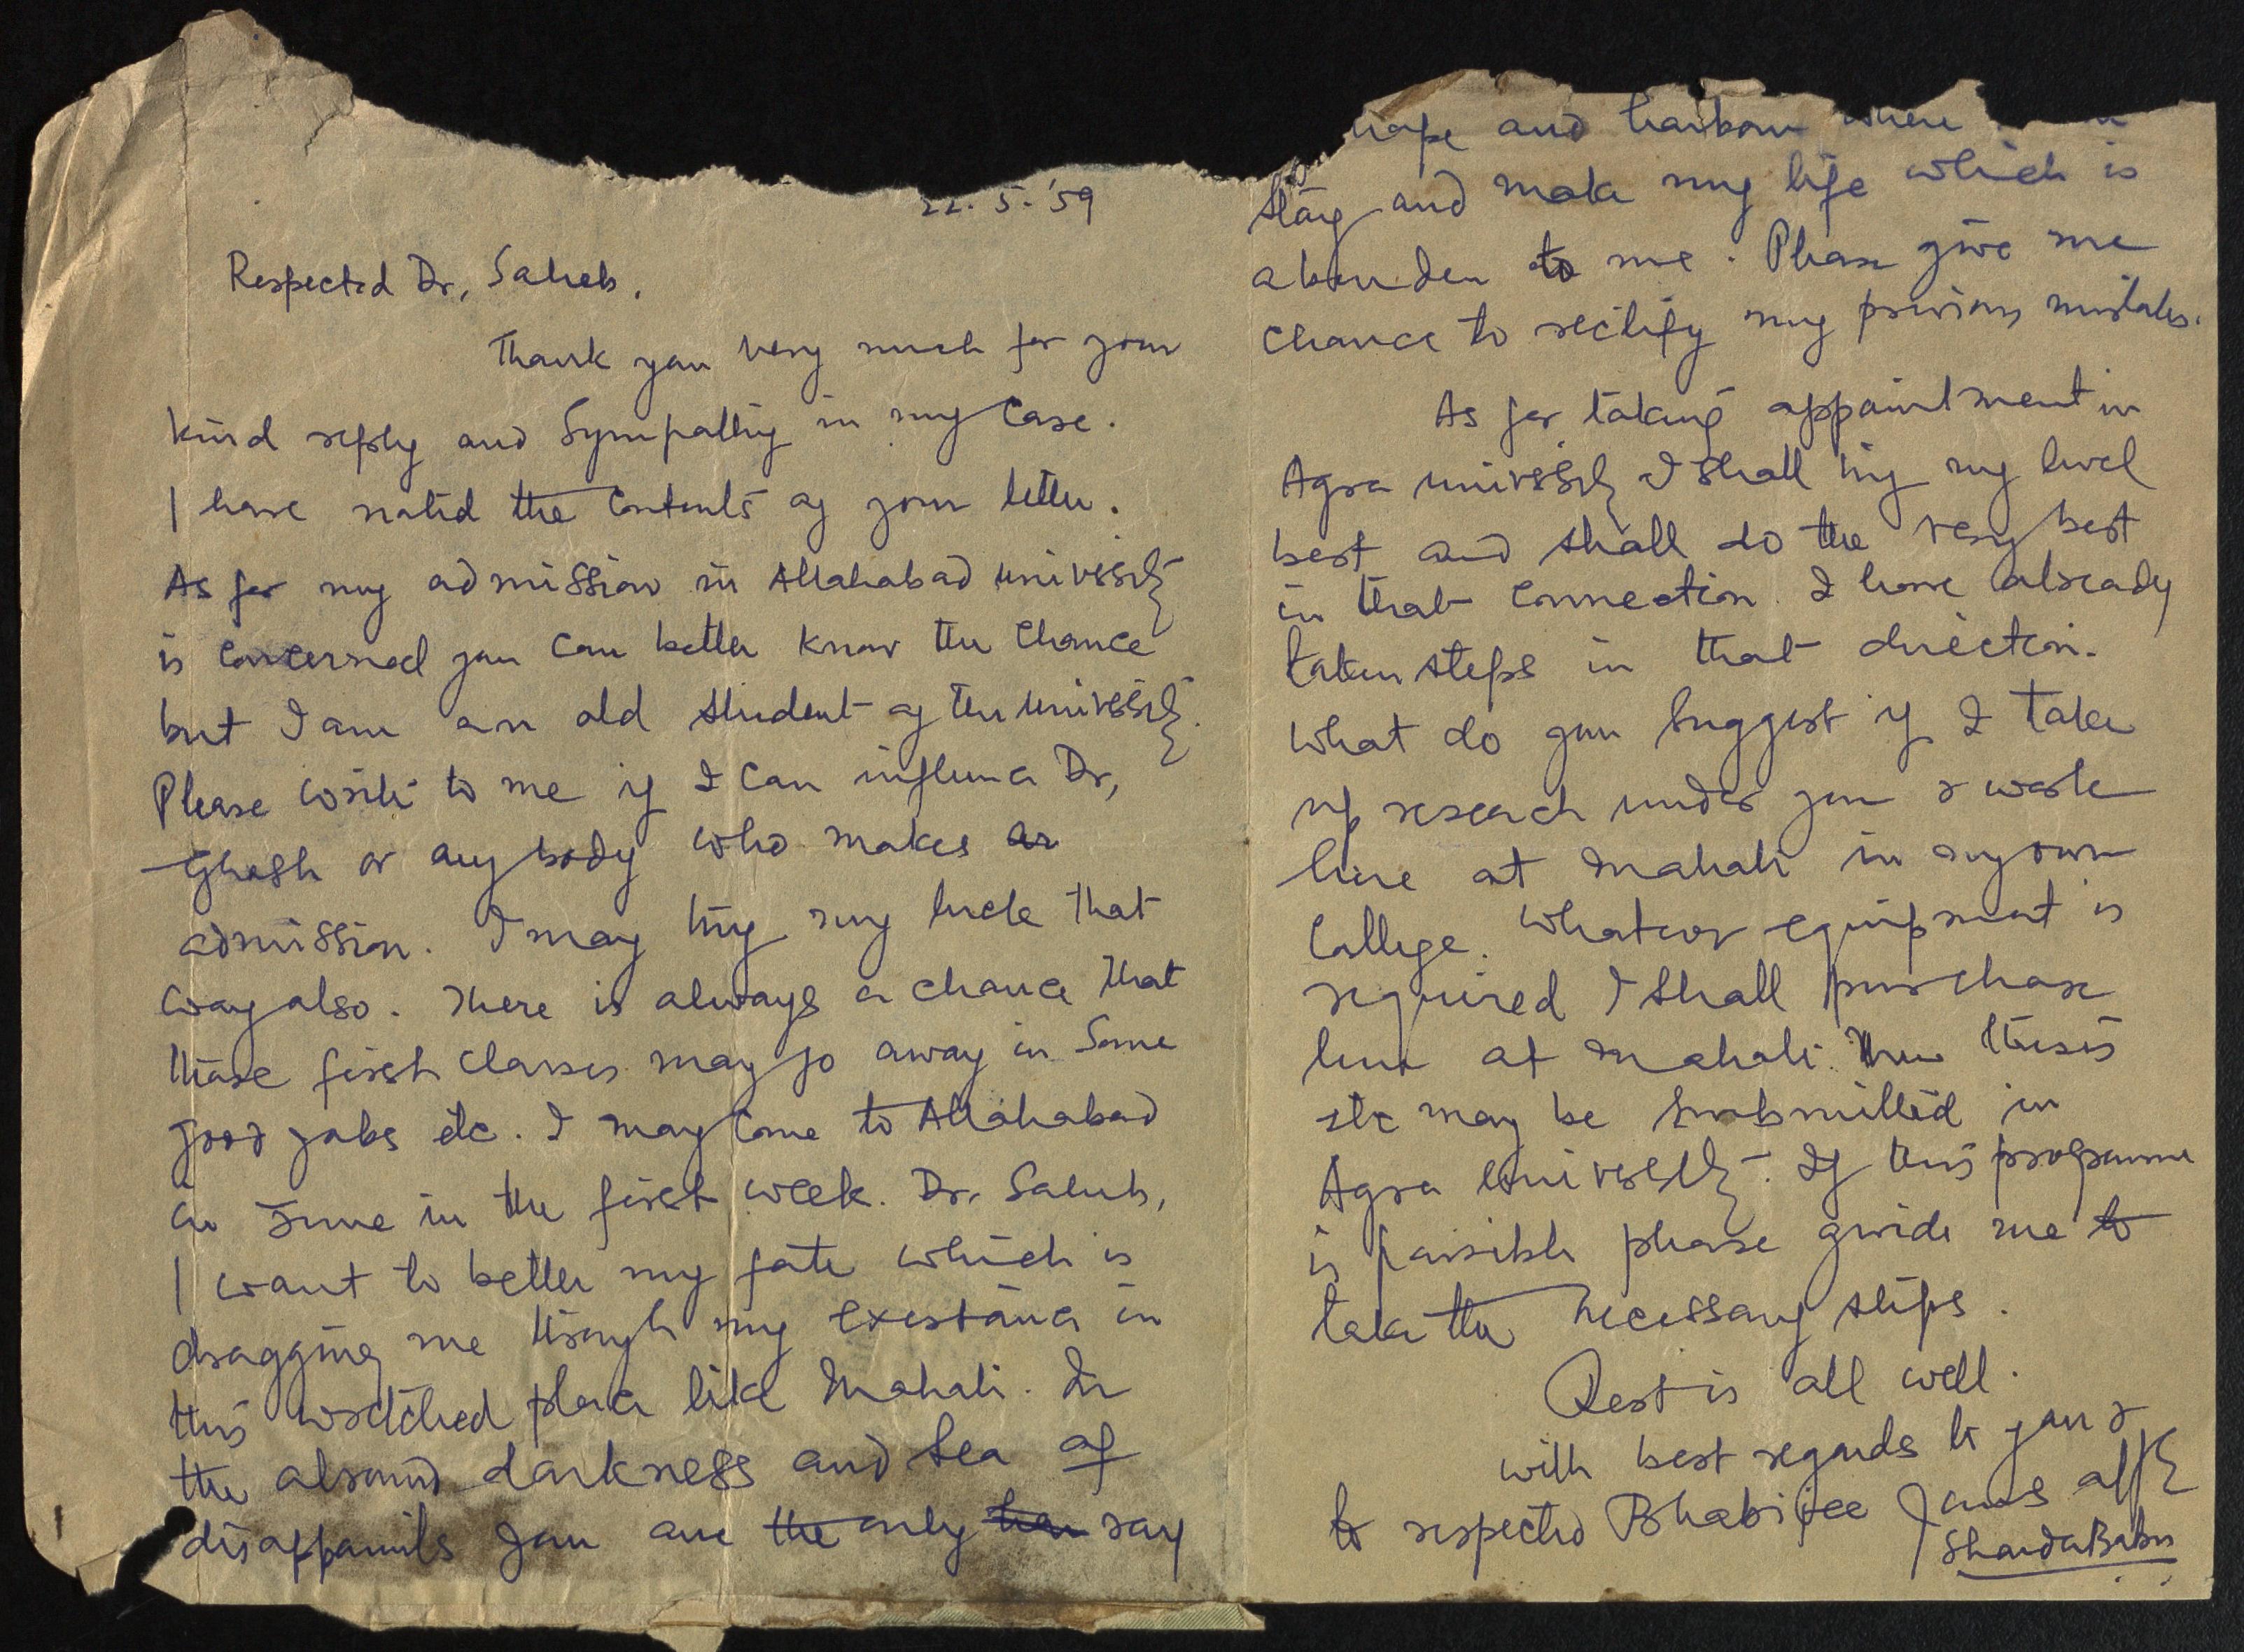 22. 5. '59
Respected Dr, Saheb,
Thank you very much for your
kind reply and Sympathy in my case.
I have noted the contents of your letter.
As for my admission in Allahabad university
is concerned you can better know the chance
but I am an old student of the university.
Please write to me if I can influence Dr,
Ghosh or any body who makes
admission. I may try my luck that
way also. There is always a chance that
those first classes may go away in some
good jobs etc. I may come to Allahabad
in June in the first week. Dr. Saheb,
I want to better my fate which is
dragging me through my existance in
this wretched place like Mahali. In
the darkness and sea of
disappoints you are the only ray
hope and harbour where
stay and make my life which is
to me. Please give me
chance to rectify my previous mistakes.
As for taking appointment in
Agra university I shall try my level
best and shall do the very best
in that connection. I have already
taken steps in that direction.
What do you suggest if I take
up research under you & work
here at Mahali in my own
College. Whatever equipment is
required I shall purchase
here at Mahali. Then thesis
etc may be submitted in
Agra University. If this programme
is possible please guide me to
take the necessary steps.
Rest is all well.
with best regards to you &
to respected Bhabijee yours affly
ShardaBabu